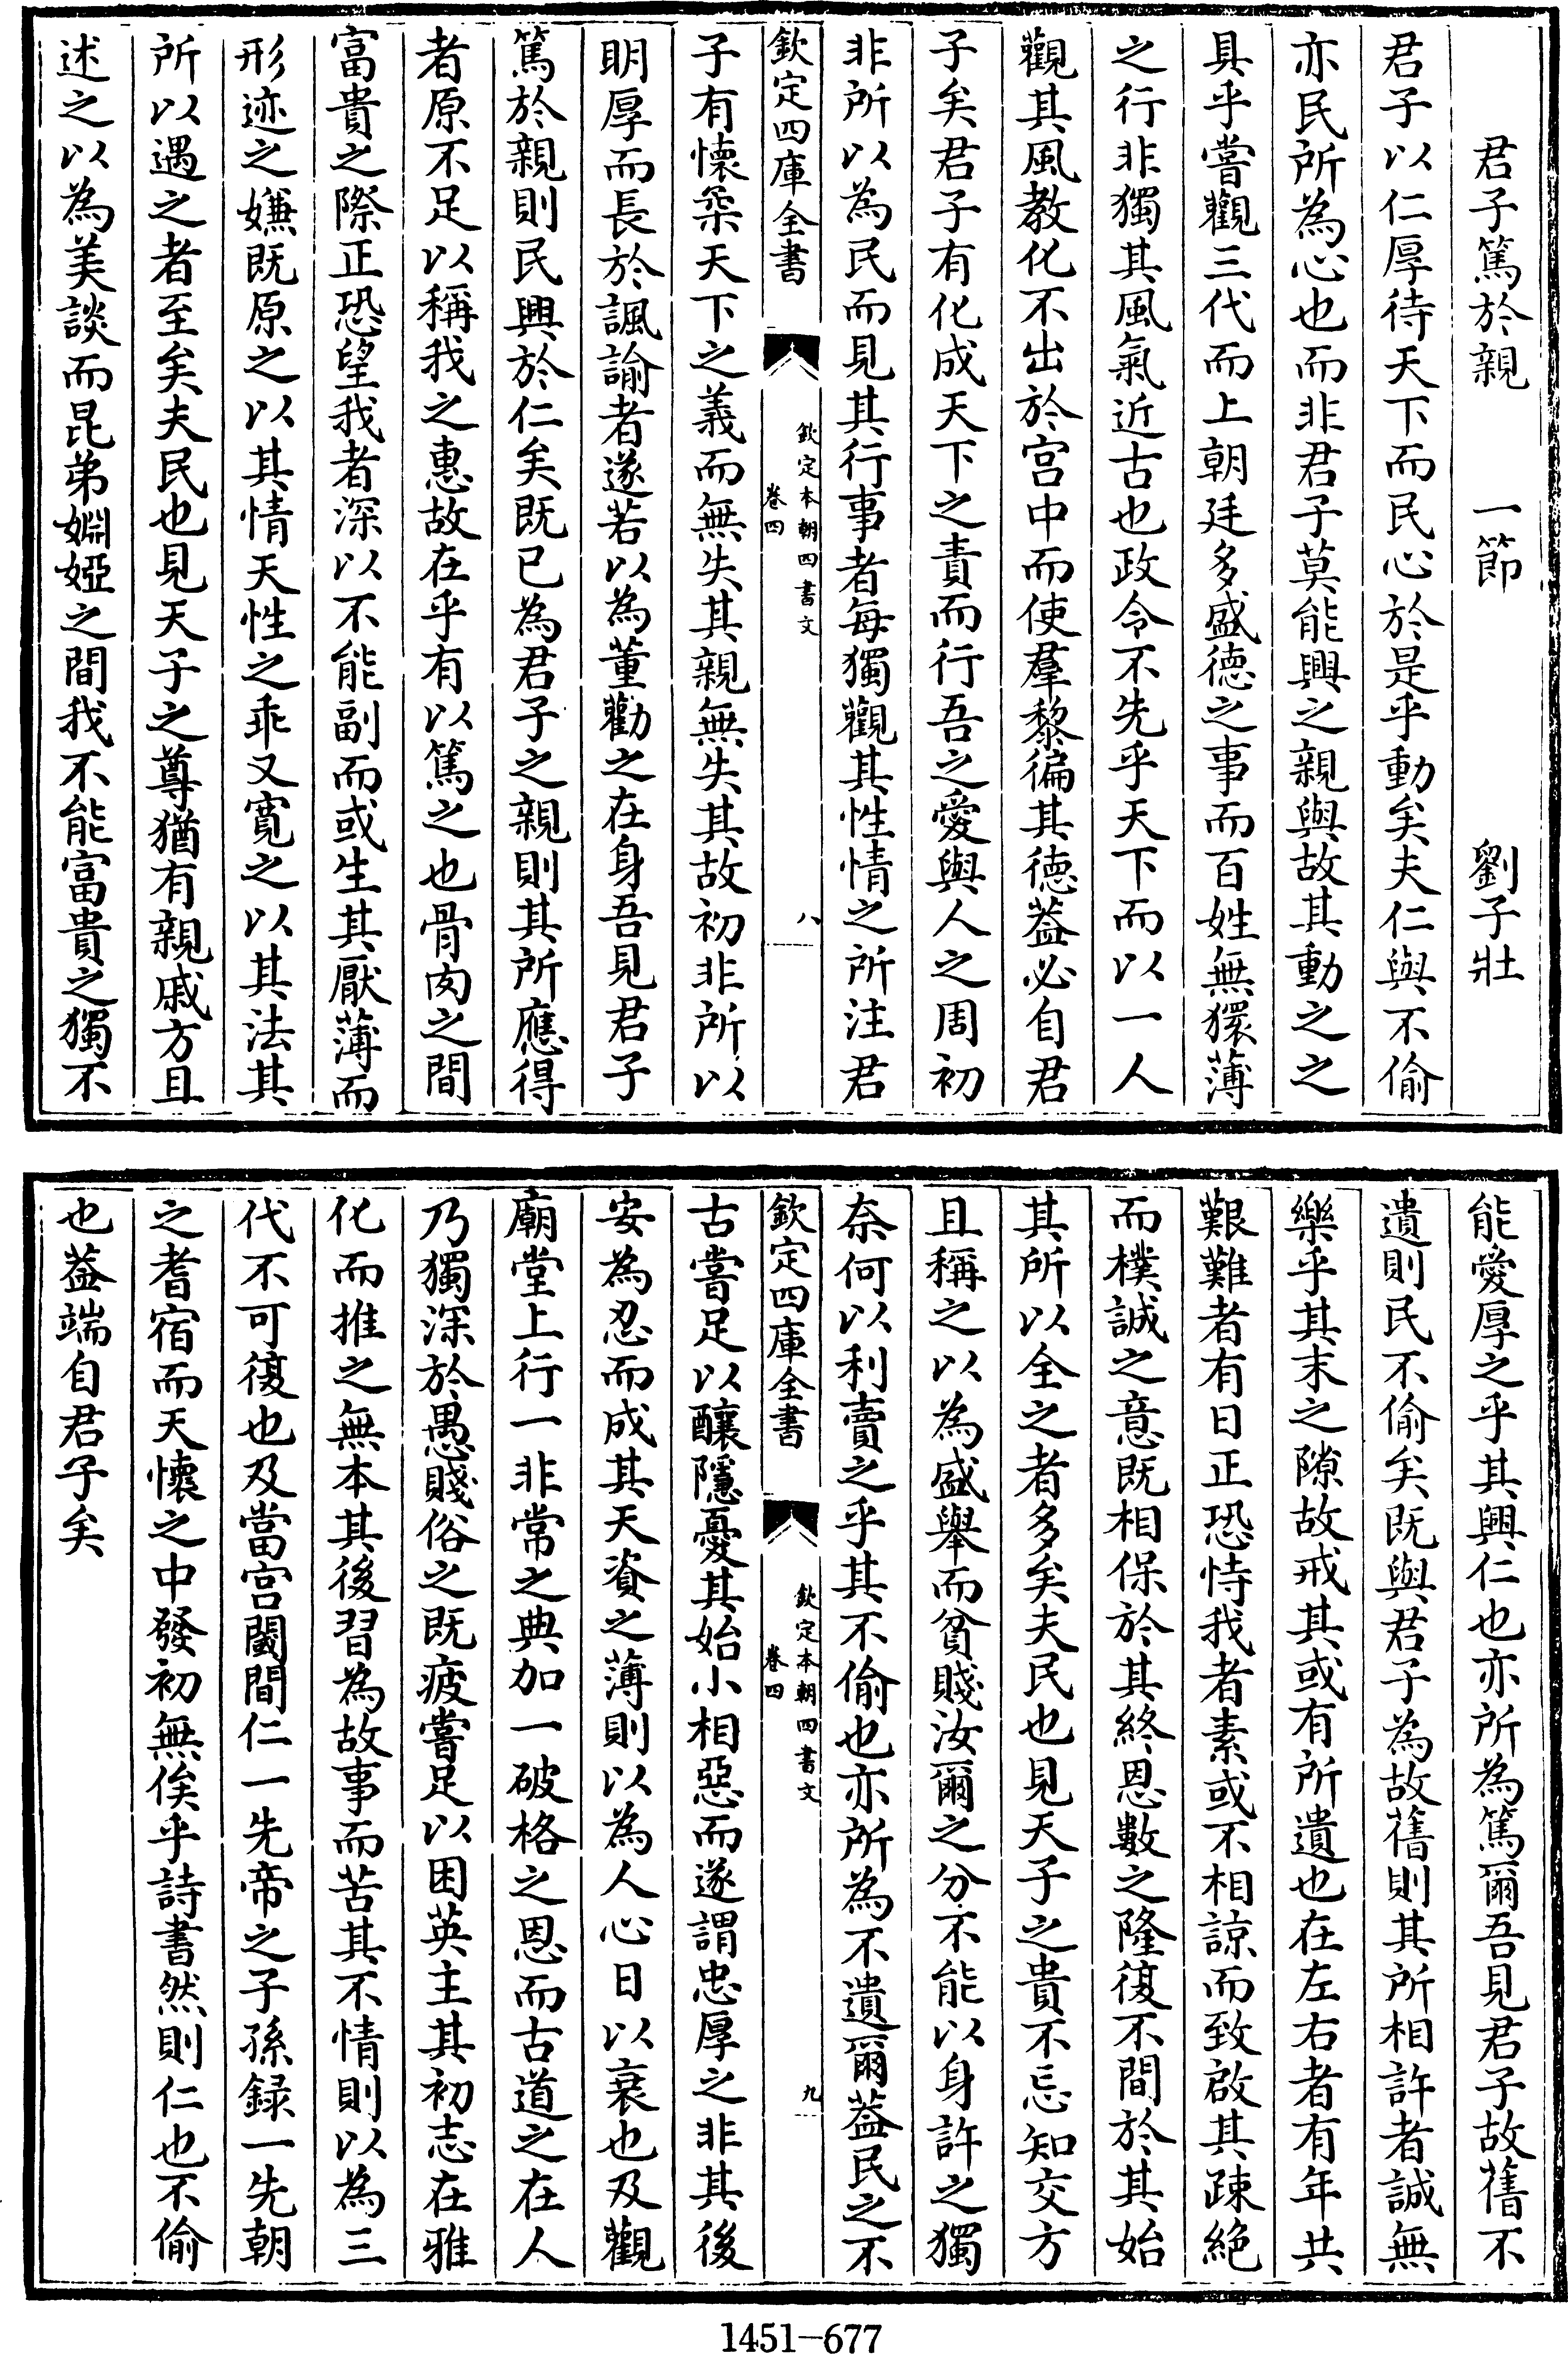 君子篤於親　一節　劉子壯
君子以仁厚待天下而民心於是乎動矣夫仁與不偷
亦民所為心也而非君子莫能興之親與故其動之之
具乎嘗觀三代而上朝廷多盛德之事而百姓無獧薄
之行非獨其風氣近古也政令不先乎天下而以一人
觀其風教化不出於宫中而使羣黎徧其德葢必自君
子矣君子有化成天下之責而行吾之愛與人之周初
非所以為民而見其行事者每獨觀其性情之所注君
欽定四庫全書
欽定本朝四書文
卷四
八
子有懷柔天下之義而無失其親無失其故初非所以
明厚而長於諷諭者遂若以為董勸之在身吾見君子
篤於親則民興於仁矣既已為君子之親則其所應得
者原不足以稱我之惠故在乎有以篤之也骨肉之間
富貴之際正恐望我者深以不能副而或生其厭薄而
形迹之嫌既原之以其情天性之乖又寛之以其法其
所以遇之者至矣夫民也見天子之尊猶有親戚方且
述之以為美談而昆弟婣婭之間我不能富貴之獨不
能愛厚之乎其興仁也亦所為篤爾吾見君子故舊不
遺則民不偷矣既與君子為故舊則其所相許者誠無
樂乎其末之隙故戒其或有所遺也在左右者有年共
艱難者有日正恐恃我者素或不相諒而致啟其疎絶
而樸誠之意既相保於其終恩數之隆復不間於其始
其所以全之者多矣夫民也見天子之貴不忘知交方
且稱之以為盛舉而貧賤汝爾之分不能以身許之獨
奈何以利賣之乎其不偷也亦所為不遺爾葢民之不
欽定四庫全書
欽定本朝四書文
卷四
九
古嘗足以釀隱憂其始小相惡而遂謂忠厚之非其後
安為忍而成其天資之薄則以為人心日以衰也及觀
廟堂上行一非常之典加一破格之恩而古道之在人
乃獨深於愚賤俗之既疲嘗足以困英主其初志在雅
化而推之無本其後習為故事而苦其不情則以為三
代不可復也及當宫閫間仁一先帝之子孫録一先朝
之耆宿而天懷之中發初無俟乎詩書然則仁也不偷
也葢端自君子矣
1451—677